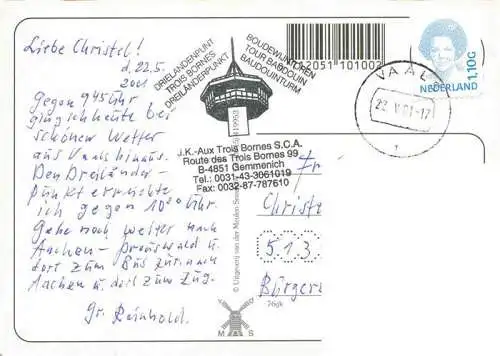 Liebe Christel!
d. 22.5.
2001
Gegen 9 45 Uhr
ging ich heute bei
schönem Wetter
aus Vaals hinaus.
Den Dreiländer-
punkt erreichte
ich gegen 10 20 Uhr.
Gehe noch weiter nach
Aachen - Preuswald u.
dort zum Bus zurück nach
Aachen u. dort zum Zug.
Gr. Reinhold.
DRIELANDENPUNT
TROIS BORNES
DREILÄNDERPUNKT
BOUDEWIJNTOREN
TOUR BAUDOUIN
BAUDOUINTURM
712051 101002
J.K.-Aux Trois Bornes S.C.A.
Route des Trois Bornes 99
B-4851 Gemmenich
Tel.: 0031-43-3061019
Fax: 0032-87-787610
© Uitgeverij van der Meulen
MAS
VAALS
22.V.01-17
1
1,10 G
NEDERLAND
Fr
Christe
513
Bürger